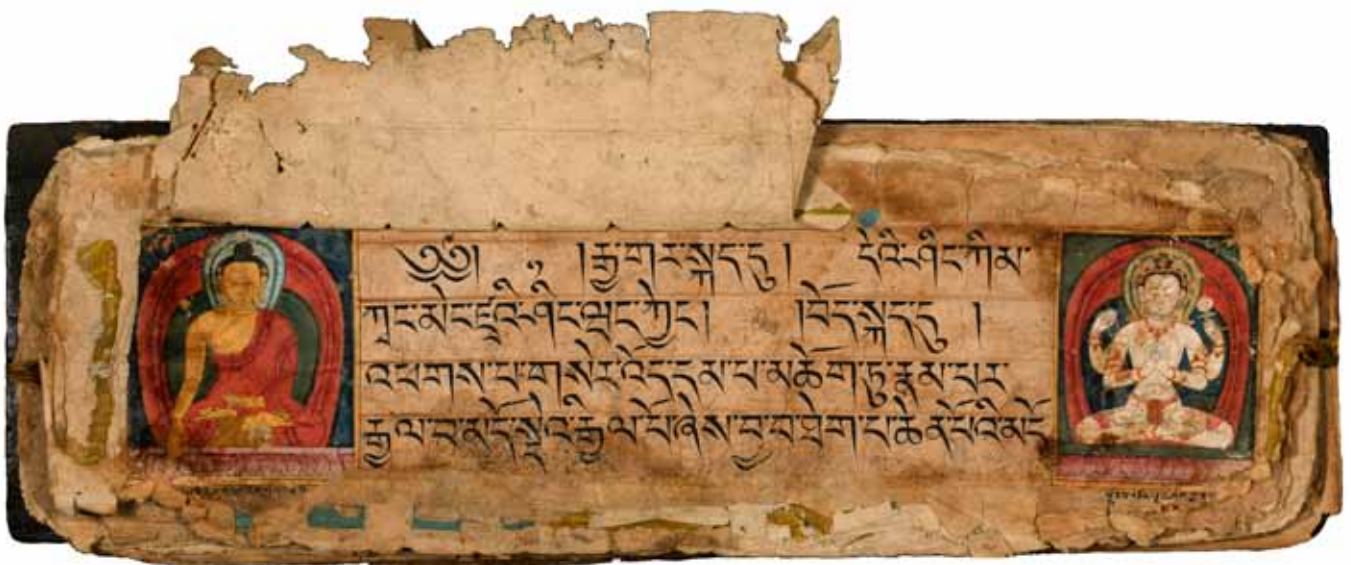 ༄༅། །རྒྱ་གར་སྐད་དུ། དེའི་ཤིང་ཀིམ་
ཀྭང་མེང་ཛྭའི་ཤིང་ཀྱེང། །བོད་སྐད་དུ །
འཕགས་པ་གསེར་འོད་དམ་པ་མཆོག་ཏུ་རྣམ་པར་
རྒྱལ་བ་མདོ་སྡེའི་རྒྱལ་པོ་ཞེས་བྱ་བ་ཐེག་པ་ཆེན་པོའི་མདོ